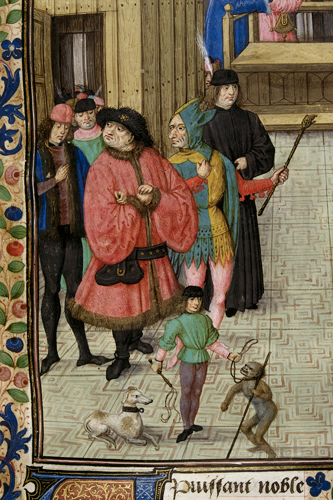 Puissant noble